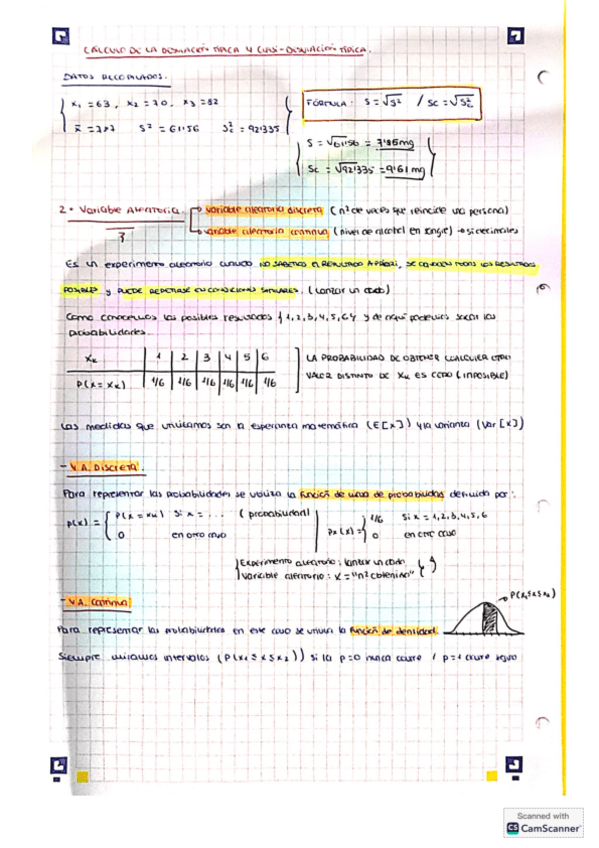 CÁLCULO DE LA DESVIACIÓN TÍPICA Y CUASI-DESVIACIÓN TÍPICA.
DATOS RECOPILADOS.
x₁ = 63, x₂ = 70, x₃ = 82
S² = 61'56 Sc² = 92'335
FÓRMULA: S = √S² / Sc = √Sc²
S = √61'56 = 7'85 mg
Sc = √92'335 = 9'61 mg
2. Variable Aleatoria
variable aleatoria discreta (nº de veces que reincide una persona)
variable aleatoria continua (nivel de alcohol en sangre) → si decimales
Es un experimento aleatorio cuando NO SABEMOS EL RESULTADO A PRIORI, SE CONOCEN TODOS LOS RESULTADOS
POSIBLES y PUEDE REPETIRSE EN CONDICIONES SIMILARES. (Lanzar un dado)
Como conocemos los posibles resultados {1,2,3,4,5,6} y de aquí podemos sacar las
probabilidades.
Xₖ 1 2 3 4 5 6
P(X = Xₖ) 1/6 1/6 1/6 1/6 1/6 1/6
LA PROBABILIDAD DE OBTENER CUALQUIER OTRO
VALOR DISTINTO DE Xₖ ES CERO (IMPOSIBLE)
Las medidas que utilizamos son la esperanza matemática (E[X]) y la varianza (Var[X])
- V.A. Discreta.
Para representar las probabilidades se utiliza la función de masa de probabilidad definida por:
p(x) = { P(X = xₖ) si x = ... (probabilidad)
0 en otro caso
Pₓ(x) = { 1/6 si x = 1,2,3,4,5,6
0 en otro caso
Experimento aleatorio: lanzar un dado
Variable aleatoria: X = "nº obtenido"
- V.A. Continua
P(x₁≤x≤x₂)
Para representar las probabilidades en este caso se utiliza la función de densidad.
Siempre miramos intervalos (P(x₁ ≤ x ≤ x₂)) si la p=0 nunca ocurre / p=1 ocurre seguro
Scanned with
CS CamScanner